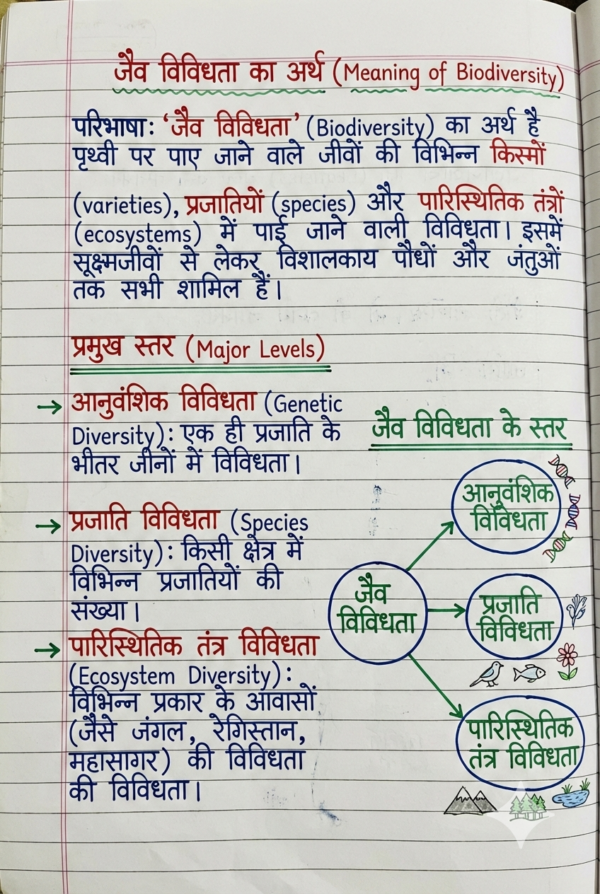 जैव विविधता का अर्थ (Meaning of Biodiversity)
परिभाषा: 'जैव विविधता' (Biodiversity) का अर्थ है
पृथ्वी पर पाए जाने वाले जीवों की विभिन्न किस्मों
(varieties), प्रजातियों (species) और पारिस्थितिक तंत्रों
(ecosystems) में पाई जाने वाली विविधता। इसमें
सूक्ष्मजीवों से लेकर विशालकाय पौधों और जंतुओं
तक सभी शामिल हैं।
प्रमुख स्तर (Major Levels)
→ आनुवंशिक विविधता (Genetic
Diversity): एक ही प्रजाति के
भीतर जीनों में विविधता।
→ प्रजाति विविधता (Species
Diversity): किसी क्षेत्र में
विभिन्न प्रजातियों की
संख्या।
→ पारिस्थितिक तंत्र विविधता
(Ecosystem Diversity):
विभिन्न प्रकार के आवासों
(जैसे जंगल, रेगिस्तान,
महासागर) की विविधता
की विविधता।
जैव विविधता के स्तर
जैव
विविधता
आनुवंशिक
विविधता
प्रजाति
विविधता
पारिस्थितिक
तंत्र विविधता